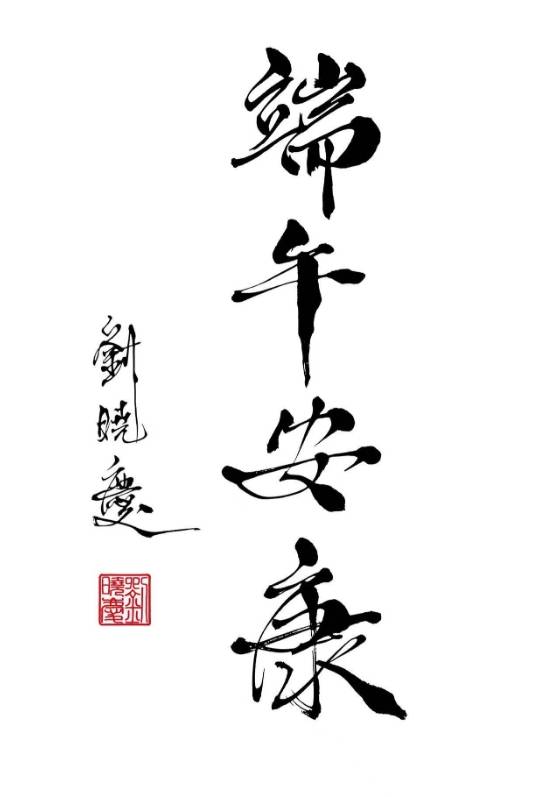 端午安康
劉曉慶
劉曉慶